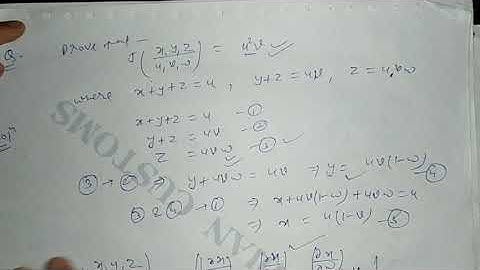 Q. Prove that -
J(x,y,z / u,v,w) = u²v ✓
where x+y+z = u, y+z = uv, z = uvw
Solⁿ x+y+z = u -①
y+z = uv -②
z = uvw -③ ✓
③ → ② ⇒ y+uvw = uv ⇒ y = uv(1-w) -④
③ & ④ → ① ⇒ x+uv(1-w)+uvw = u
⇒ x = u(1-v) -⑤
x,y,z ∂x ∂x ∂x ✓
∂w
IAN CUSTOMS